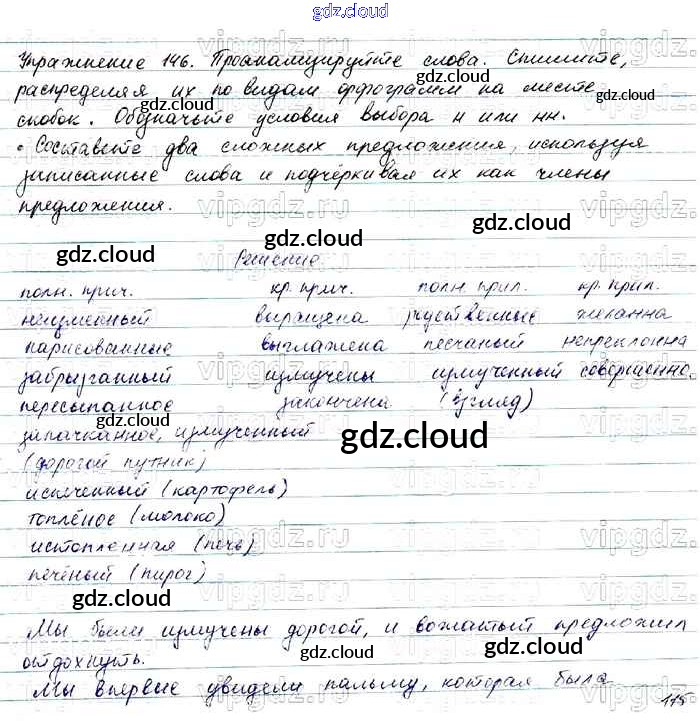 gdz.cloud
Упражнение 146. Проанализируйте слова. Спишите,
распределяя их по видам орфограмм на месте
скобок. Обозначьте условия выбора н или нн.
• Составьте два сложных предложения, используя
записанные слова и подчёркивая их как члены
предложения.
Решение.
полн. прич. кр. прич. полн. прил. кр. прил.
выращена желанна
нарисованные выглажена песчаный непреклонна
забрызганный измучены измученный совершенно.
пересыпанное закончена (взгляд)
запачканное, измученный
(дорогой путник)
испеченный (картофель)
топлёное (молоко)
истопленная (печь)
печёный (пирог)
Мы были измучены дорогой, и вожатый предложил
отдохнуть.
Мы впервые увидели пальму, которая была